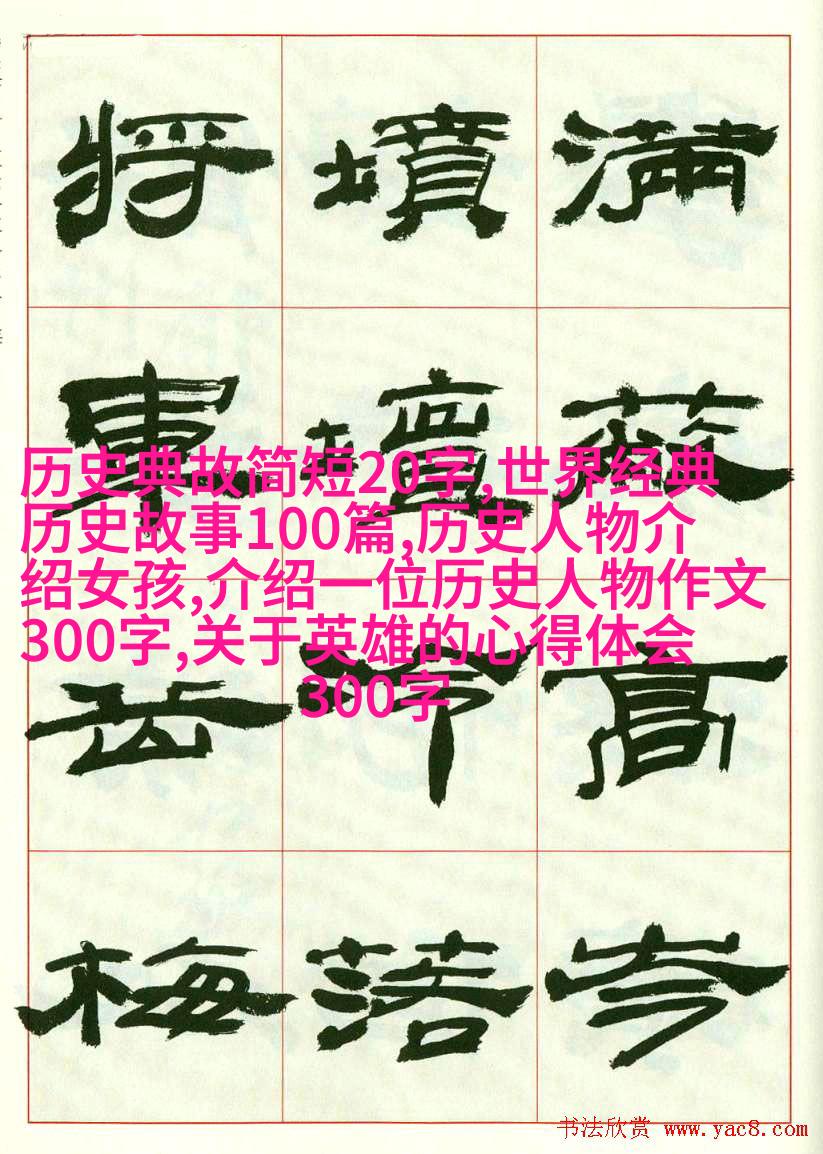 将 墳 满
專 壇 蘇
岳 冷 高
梅 落 岑
历史典故简短20字,世界经典
历史故事100篇,历史人物介
绍女孩,介绍一位历史人物作文
300字,关于英雄的心得体会
300字
书法欣赏 www.yac8.com